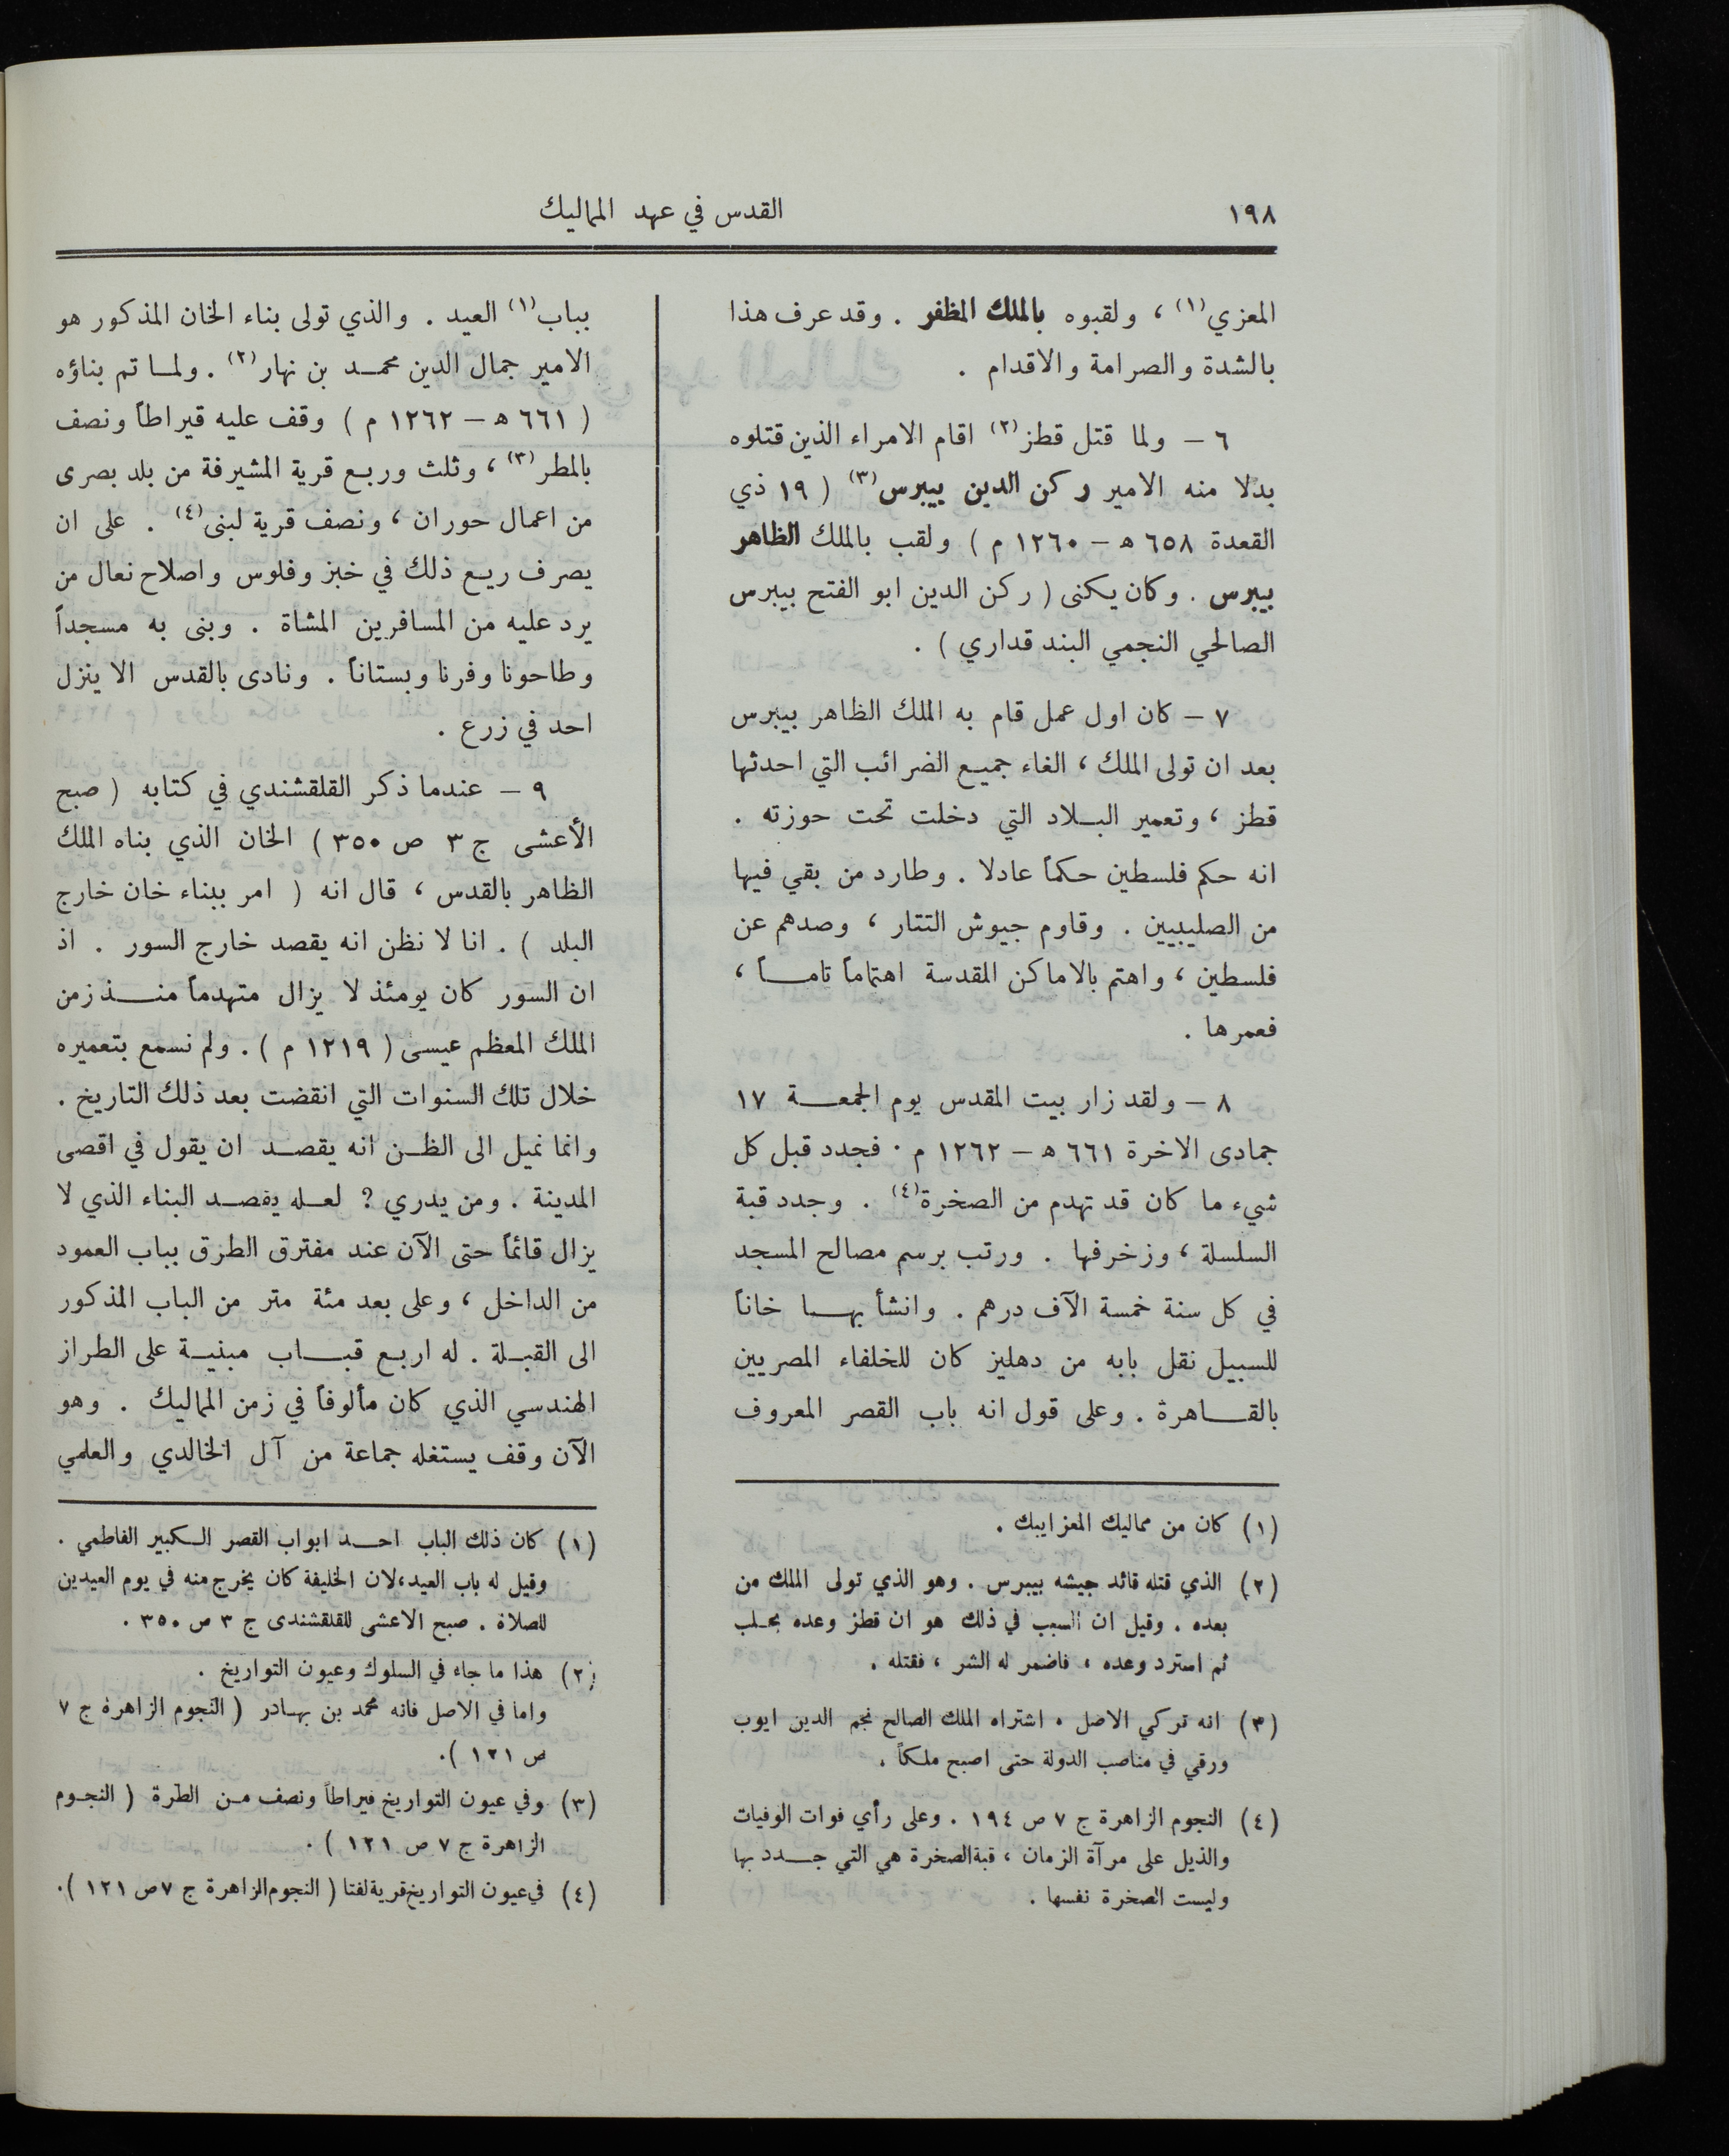 ١٩٨
القدس في عهد المماليك
المعزي(١) ، ولقبوه بالملك المظفر . وقد عرف هذا
بالشدة والصرامة والاقدام .
٦ – ولما قتل قطز(٢) اقام الامراء الذين قتلوه
بدلا منه الامير ركن الدين بيبرس(٣) ( ١٩ ذي
القعدة ٦٥٨ ه – ١٢٦٠ م ) ولقب بالملك الظاهر
بيبرس . وكان يكنى ( ركن الدين ابو الفتح بيبرس
الصالحي النجمي البندقداري ) .
٧ – كان اول عمل قام به الملك الظاهر بيبرس
بعد ان تولى الملك ، الغاء جميع الضرائب التي احدثها
قطز ، وتعمير البلاد التي دخلت تحت حوزته .
انه حكم فلسطين حكماً عادلا . وطارد من بقي فيها
من الصليبيين . وقاوم جيوش التتار ، وصدهم عن
فلسطين ، واهتم بالاماكن المقدسة اهتماماً تاماً ،
فعمرها .
٨ – ولقد زار بيت المقدس يوم الجمعة ١٧
جمادى الاخرة ٦٦١ ه – ١٢٦٢ م . فجدد قبل كل
شيء ما كان قد تهدم من الصخرة(٤) . وجدد قبة
السلسلة ، وزخرفها . ورتب برسم مصالح المسجد
في كل سنة خمسة الآف درهم . وانشأ بها خاناً
للسبيل نقل بابه من دهليز كان للخلفاء المصريين
بالقاهرة . وعلى قول انه باب القصر المعروف
(١) كان من مماليك المعز ايبك .
(٢) الذي قتله قائد جيشه بيبرس . وهو الذي تولى الملك من
بعده . وقيل ان السبب في ذلك هو ان قطز وعده بحلب
ثم استرد وعده ، فاضمر له الشر ، فقتله .
(٣) انه تركي الاصل . اشتراه الملك الصالح نجم الدين ايوب
ورقي في مناصب الدولة حتى اصبح ملكاً .
(٤) النجوم الزاهرة ج ٧ ص ١٩٤ . وعلى رأي فوات الوفيات
والذيل على مرآة الزمان ، قبة الصخرة هي التي جدد بها
وليست الصخرة نفسها .
بباب(١) العيد . والذي تولى بناء الخان المذكور هو
الامير جمال الدين محمد بن نهار(٢) . ولما تم بناؤه
( ٦٦١ ه – ١٢٦٢ م ) وقف عليه قيراطاً ونصف
بالمطر(٣) ، وثلث وربع قرية المشيرفة من بلد بصرى
من اعمال حوران ، ونصف قرية لبنى(٤) . على ان
يصرف ريع ذلك في خبز وفلوس واصلاح نعال من
يرد عليه من المسافرين المشاة . وبنى به مسجداً
وطاحونا وفرنا وبستاناً . ونادى بالقدس الا ينزل
احد في زرع .
٩ – عندما ذكر القلقشندي في كتابه ( صبح
الأعشى ج ٣ ص ٣٥٠ ) الخان الذي بناه الملك
الظاهر بالقدس ، قال انه ( امر ببناء خان خارج
البلد ) . انا لا نظن انه يقصد خارج السور . اذ
ان السور كان يومئذ لا يزال متهدماً منذ زمن
الملك المعظم عيسى ( ١٢١٩ م ) . ولم نسمع بتعميره
خلال تلك السنوات التي انقضت بعد ذلك التاريخ .
وانما نميل الى الظن انه يقصد ان يقول في اقصى
المدينة . ومن يدري ? لعله يقصد البناء الذي لا
يزال قائماً حتى الآن عند مفترق الطرق بباب العمود
من الداخل ، وعلى بعد مئة متر من الباب المذكور
الى القبلة . له اربع قباب مبنية على الطراز
الهندسي الذي كان مألوفاً في زمن المماليك . وهو
الآن وقف يستغله جماعة من آل الخالدي والعلمي
(١) كان ذلك الباب احد ابواب القصر الكبير الفاطمي .
وقيل له باب العيد، لان الخليفة كان يخرج منه في يوم العيدين
للصلاة . صبح الاعشى للقلقشندى ج ٣ ص ٣٥٠ .
(٢) هذا ما جاء في السلوك وعيون التواريخ .
واما في الاصل فانه محمد بن بهادر ( النجوم الزاهرة ج ٧
ص ١٢١ ).
(٣) وفي عيون التواريخ قيراطاً ونصف من الطرة ( النجوم
الزاهرة ج ٧ ص ١٢١ ) .
(٤) في عيون التواريخ قرية لفتا ( النجوم الزاهرة ج ٧ ص ١٢١ ).